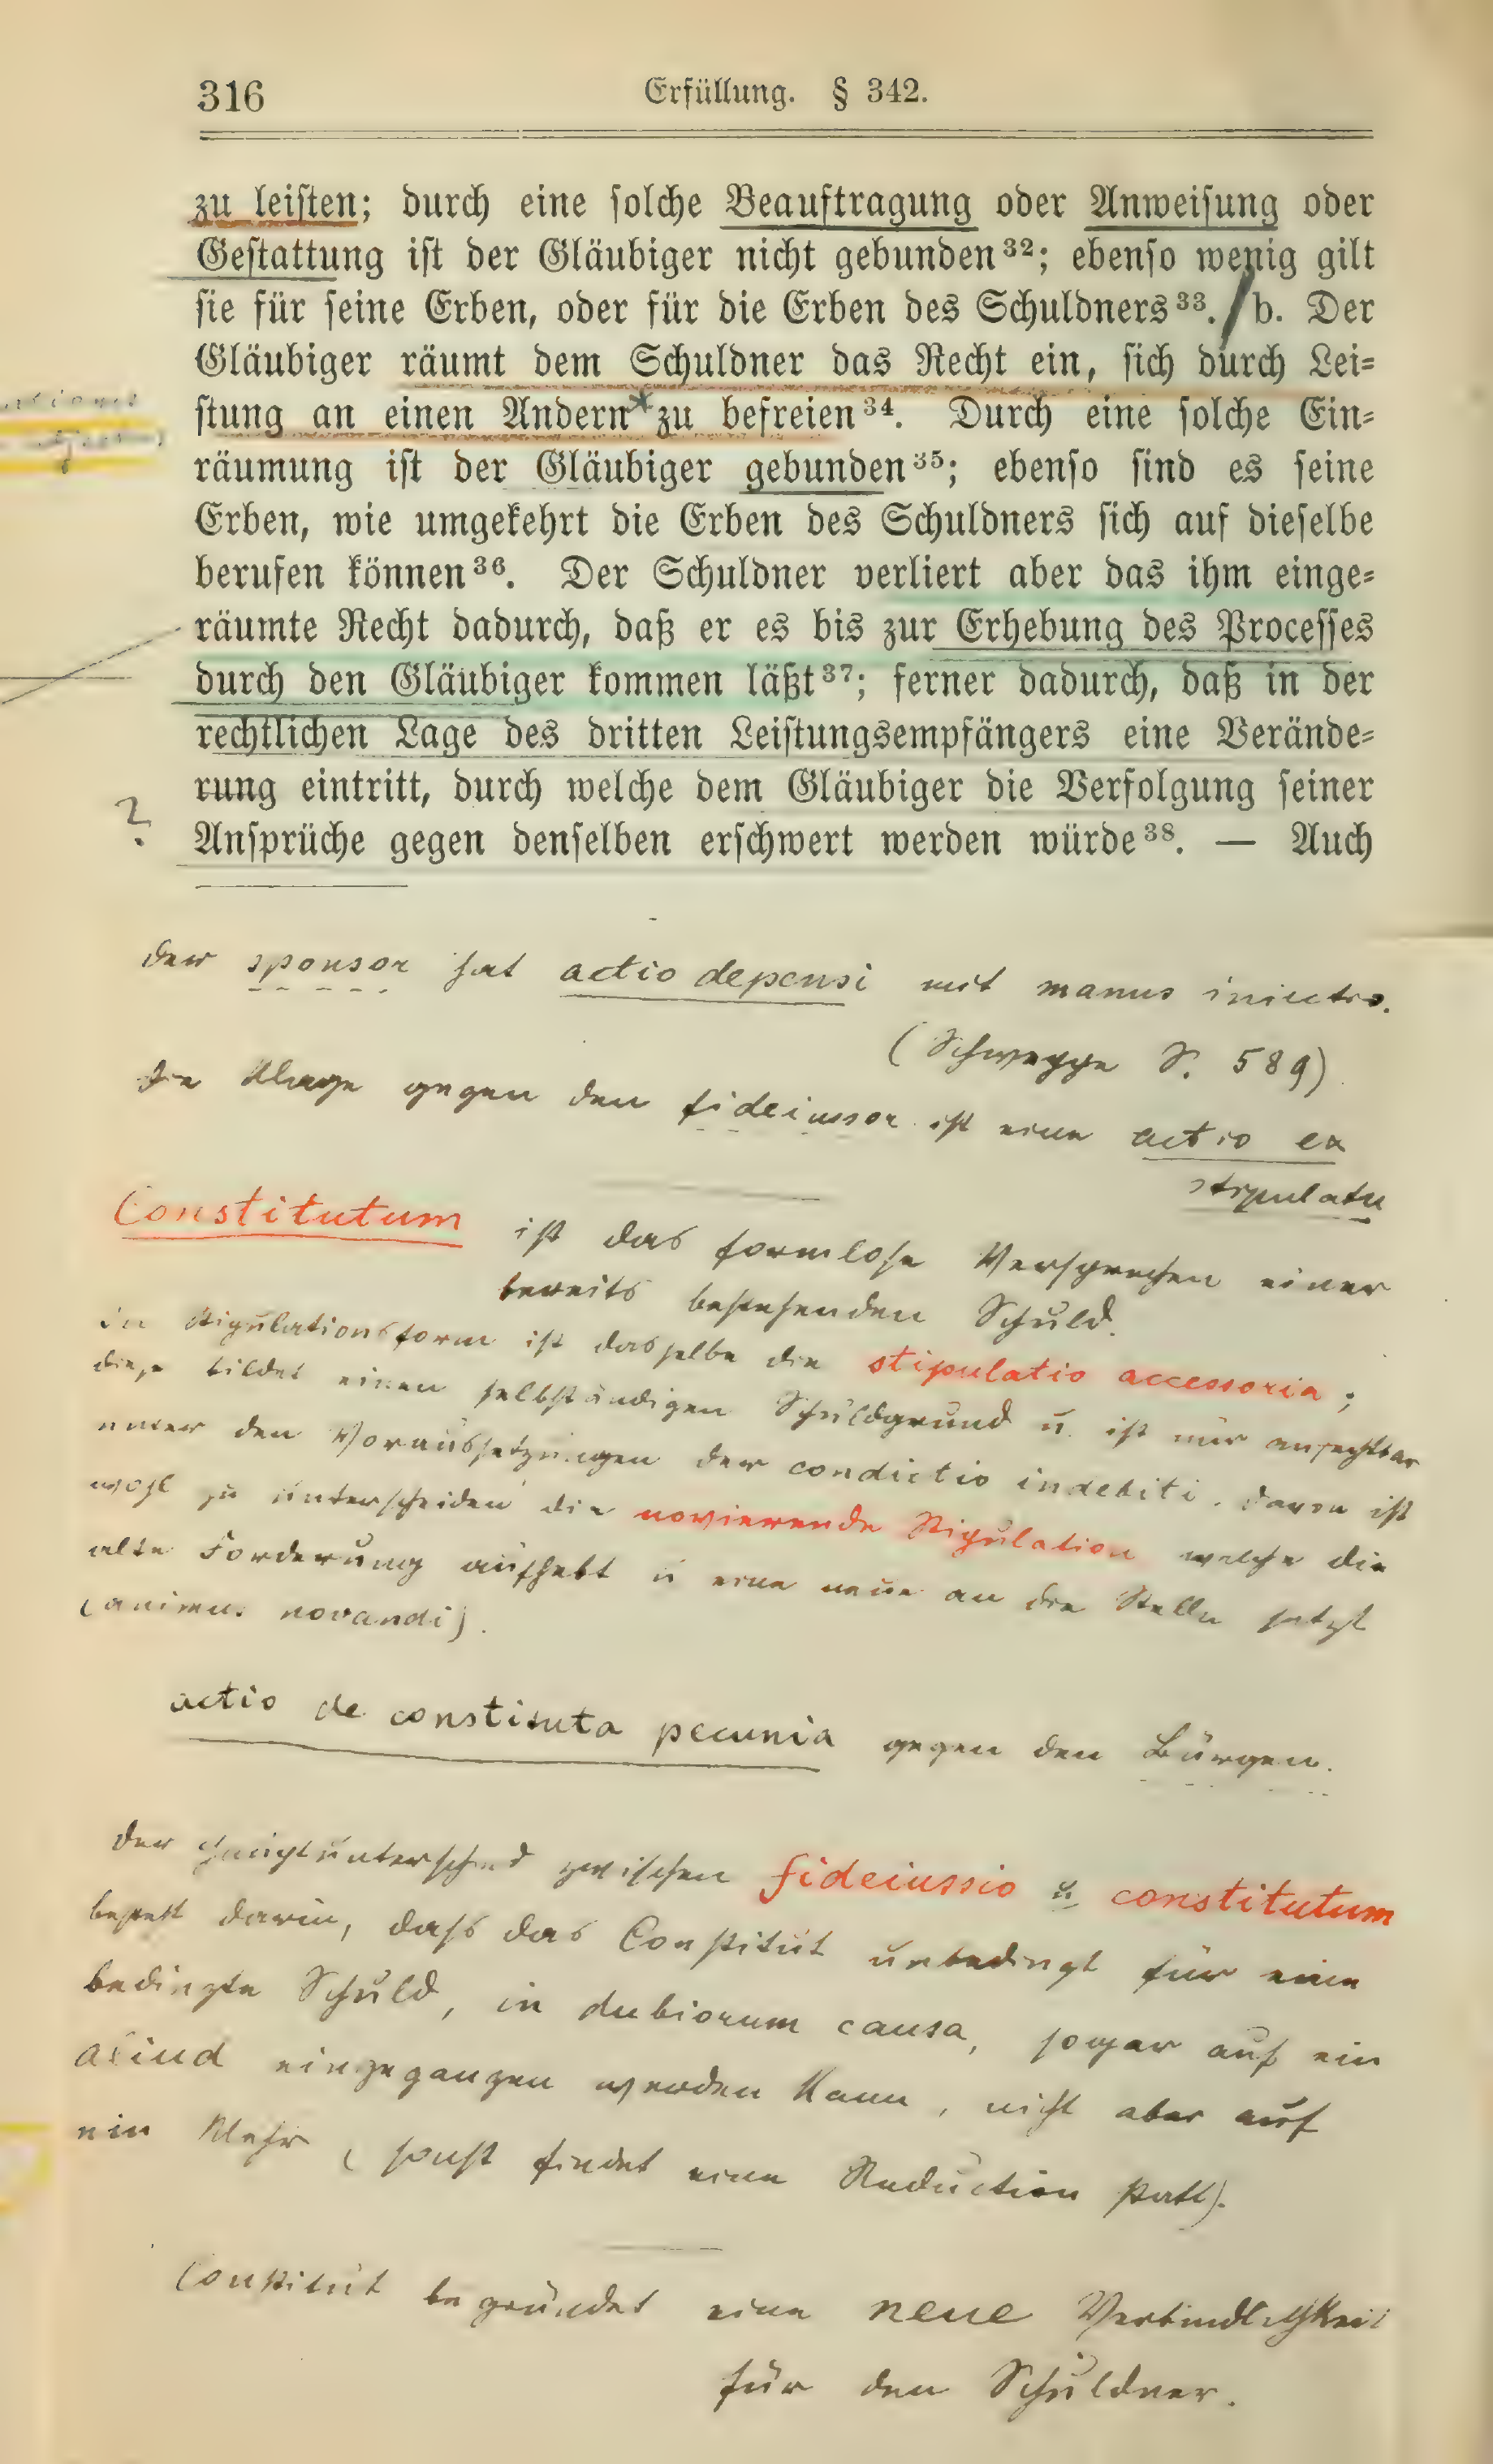 316
Erfüllung. § 342.
zu leiſten; durch eine ſolche Beauftragung oder Anweiſung oder
Geſtattung iſt der Gläubiger nicht gebunden³²; ebenſo wenig gilt
ſie für ſeine Erben, oder für die Erben des Schuldners³³. / b. Der
Gläubiger räumt dem Schuldner das Recht ein, ſich durch Lei=
ſtung an einen Andern * zu befreien³⁴. Durch eine ſolche Ein=
räumung iſt der Gläubiger gebunden³⁵; ebenſo ſind es ſeine
Erben, wie umgekehrt die Erben des Schuldners ſich auf dieſelbe
berufen können³⁶. Der Schuldner verliert aber das ihm einge=
räumte Recht dadurch, daß er es bis zur Erhebung des Proceſſes
durch den Gläubiger kommen läßt³⁷; ferner dadurch, daß in der
rechtlichen Lage des dritten Leiſtungsempfängers eine Verände=
rung eintritt, durch welche dem Gläubiger die Verfolgung ſeiner
?
Anſprüche gegen denſelben erſchwert werden würde³⁸. — Auch
der sponsor hat actio depensi mit manus iniectio.
(Schweppe S. 589)
Die Klage gegen den fideiussor ist eine actio ex
stipulatu
Constitutum ist das formlose Versprechen einer
bereits bestehenden Schuld.
In Stipulationsform ist dasselbe die stipulatio accessoria;
diese bildet einen selbständigen Schuldgrund u. ist nur anfechtbar
unter den Voraussetzungen der condictio indebiti. Davon ist
wohl zu unterscheiden die novierende Stipulation welche die
alte Forderung aufhebt u eine neue an die Stelle setzt
(animus novandi).
actio de constituta pecunia gegen den Bürgen.
Der Hauptunterschied zwischen fideiussio u constitutum
besteht darin, dass das Constitut unbedingt für eine
bedingte Schuld, in dubiorum causa, sogar auf ein
aliud eingegangen werden kann, nicht aber auf
ein Mehr (sonst findet eine Reduction statt).
Constitut begründet eine neue Verbindlichkeit
für den Schuldner.